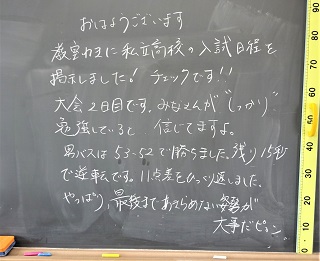 おはようございます
教室わきに私立高校の入試日程を
掲示しました! チェックです!!
大会2日目です。みなさんが"しっかり"
勉強していると 信じてますよ。
男バスは53-52で勝ちました。残り15秒
で逆転です。11点差をひっくり返しました。
やっぱり、最後まであきらめない姿勢が
大事だピョン
90
80
70
60
50
40
30
20
10